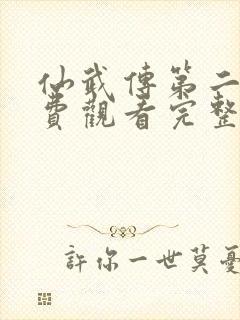 仙武傳第二
費觀看完整
許你一世莫憂